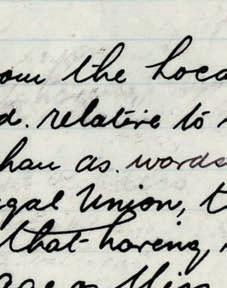 om the Loca
d. relative to
han as. words
gal Union, t
that having,